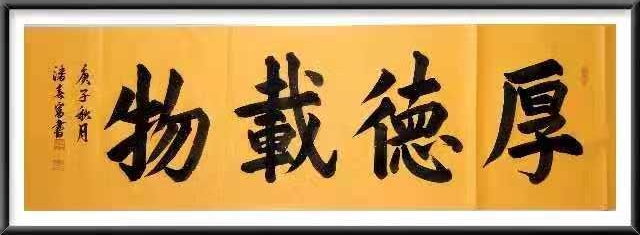 厚德載物
庚子秋月
潘春富書